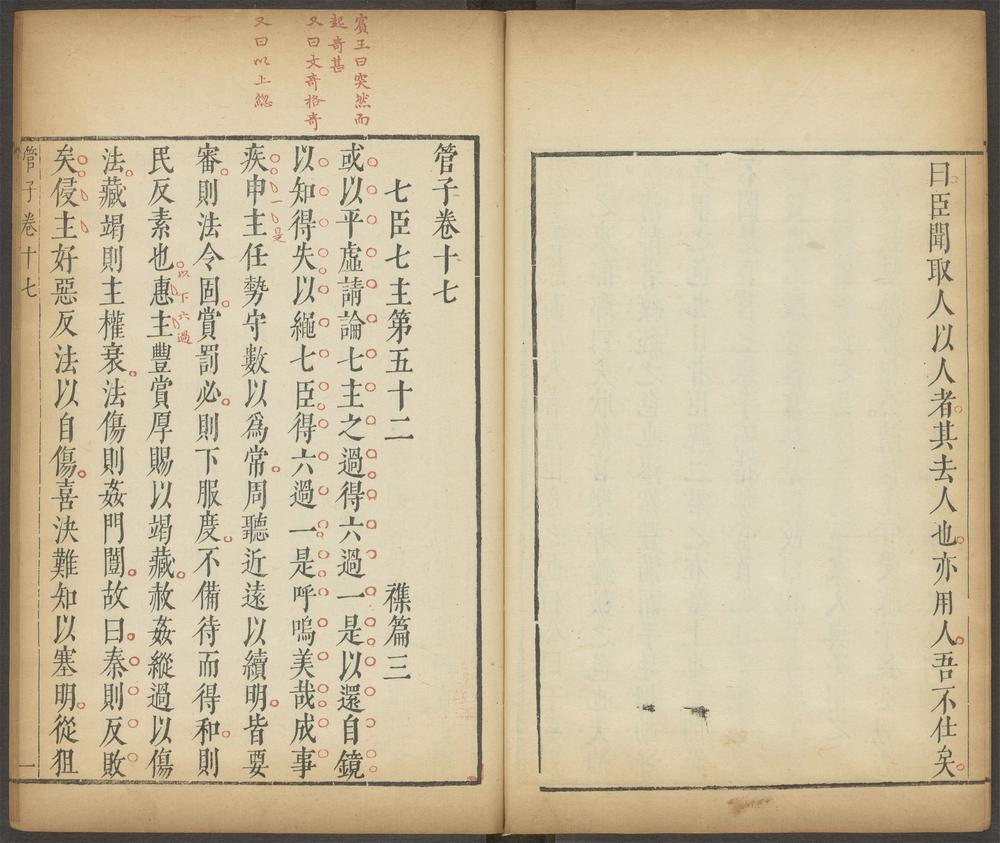 曰臣聞取人以人者其去人也亦用人吾不仕矣
賓王曰突然而
起奇甚
又曰文奇格奇
又曰以上總
管子卷十七
七臣七主第五十二 襍篇三
或以平虛請論七主之過得六過一是以還自鏡
以知得失以繩七臣得六過一是呼嗚美哉成事
疾申主任勢守數以爲常周聽近遠以續明皆要
一是
審則法令固賞罰必則下服度不備待而得和則
民反素也惠主豐賞厚賜以竭藏赦姦縱過以傷
以下六過
法藏竭則主權衰法傷則姦門闓故曰泰則反敗
矣侵主好惡反法以自傷喜決難知以塞明從狙
管子卷十七 一